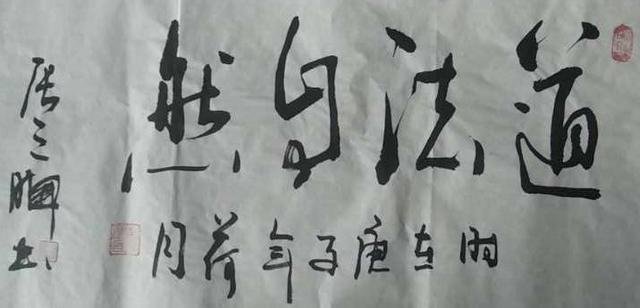 道法自然
时在庚子年荷月
张三
书